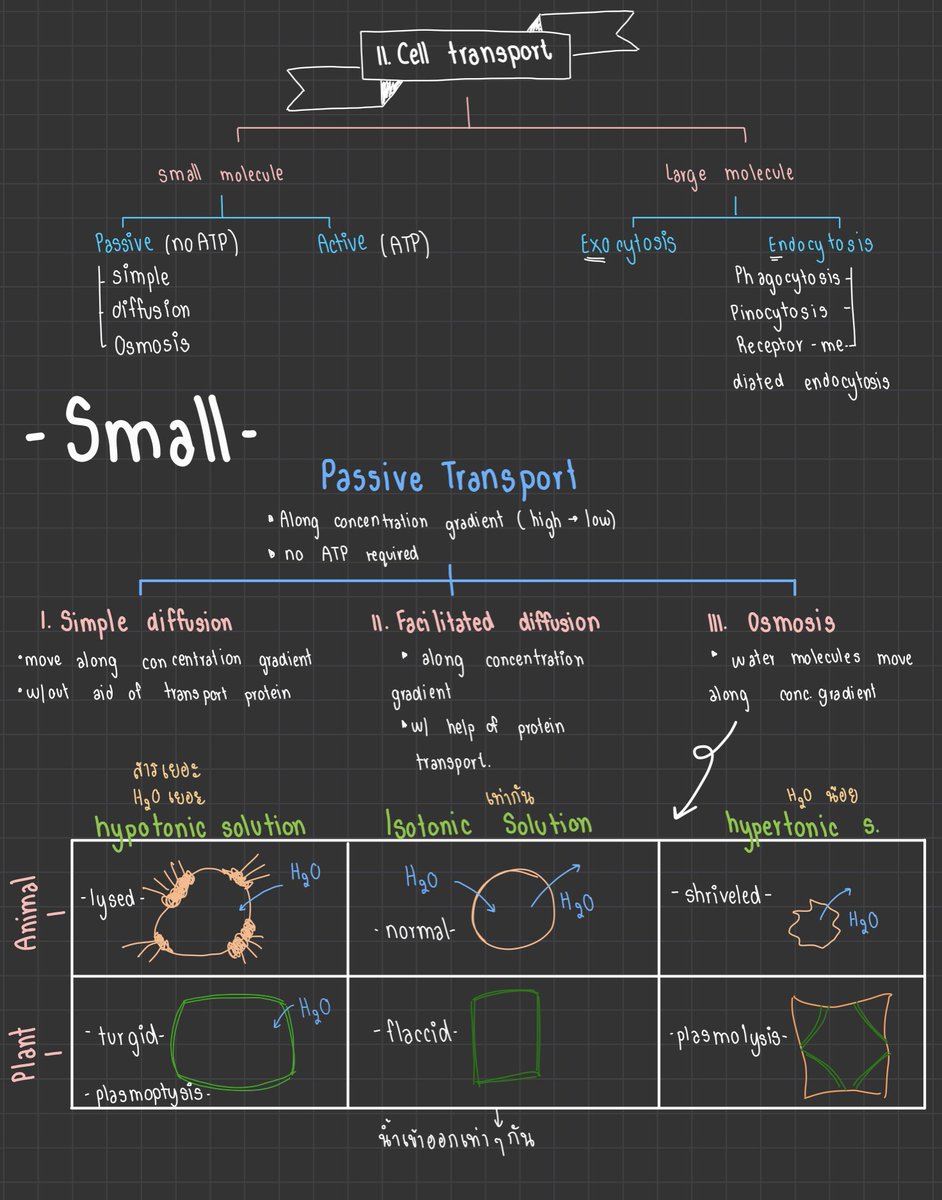 II. Cell transport
small molecule
Large molecule
Passive (no ATP)
Active (ATP)
Exocytosis
Endocytosis
simple
diffusion
Osmosis
Phagocytosis
Pinocytosis
Receptor - me-
diated endocytosis
- Small -
Passive Transport
• Along concentration gradient (high → low)
• no ATP required
I. Simple diffusion
• move along concentration gradient
• w/out aid of transport protein
II. Facilitated diffusion
• along concentration
gradient
• w/ help of protein
transport.
III. Osmosis
• water molecules move
along conc. gradient
สารเยอะ
H₂O เยอะ
hypotonic solution
เท่ากัน
Isotonic Solution
H₂O น้อย
hypertonic s.
Animal
- lysed -
H₂O
H₂O
H₂O
- normal -
- shriveled -
H₂O
Plant
- turgid -
H₂O
- plasmoptysis -
- flaccid -
- plasmolysis -
น้ำเข้าออกเท่าๆกัน